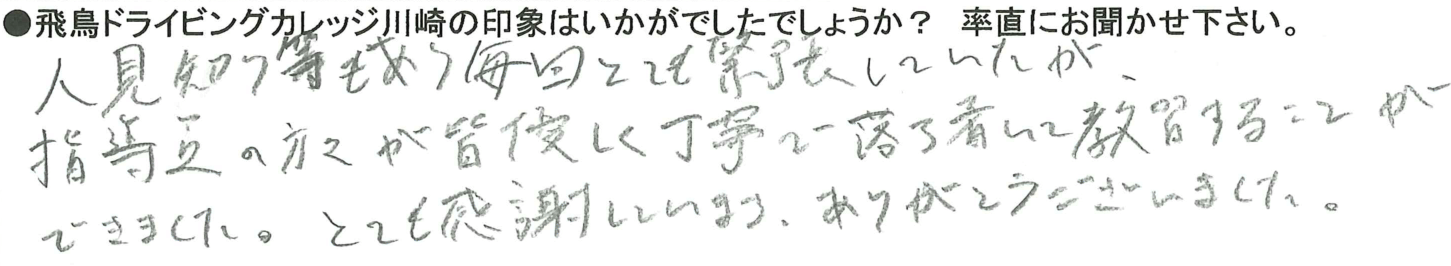 ●飛鳥ドライビングカレッジ川崎の印象はいかがでしたでしょうか？ 率直にお聞かせ下さい。
人見知り等もあり毎回とても緊張していたが、
指導員の方々が皆優しく丁寧で落ち着いて教習することが
できました。とても感謝しています。ありがとうございました。